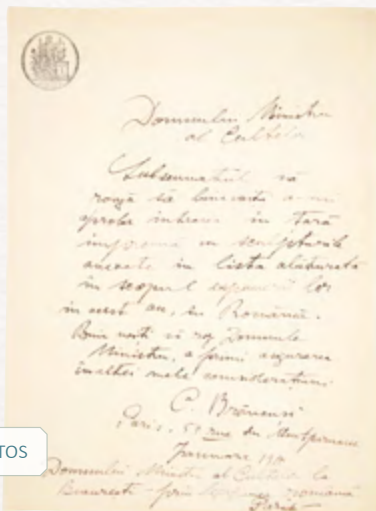 Domnului Ministru
al Cultelor
Subsemnatul vă
roagă să binevoiți a-mi
aproba intrarea în Țară
împreună cu sculpturile
anexate în lista alăturată
în scopul expunerii lor
în acest an, în România.
Bine voiți vă rog Domnule
Ministru, a primi asigurarea
înaltei mele considerațiuni
C. Brâncuși
Paris, 54 rue du Montparnasse
Januarie
Domnului Ministru al Cultelor la
București - prin română
Paris
TOS